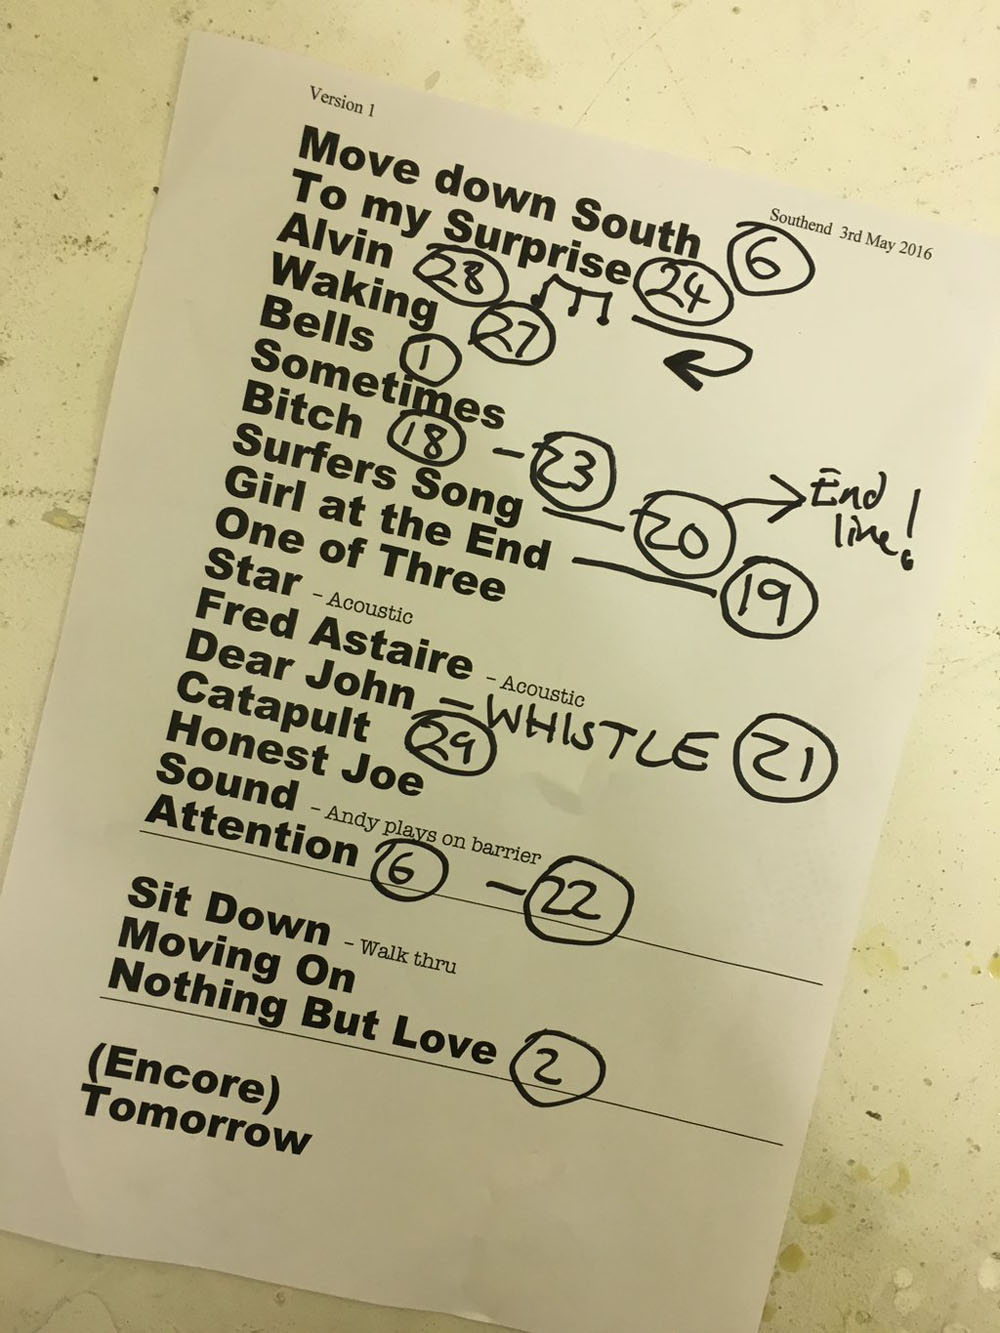 Version 1
Southend 3rd May 2016
Move down South 6
To my Surprise 24
Alvin 28
Waking 27
Bells 1
Sometimes
Bitch 18 - 23
Surfers Song 20 End line!
Girl at the End 19
One of Three
Star - Acoustic
Fred Astaire - Acoustic
Dear John - WHISTLE 21
Catapult 29
Honest Joe
Sound - Andy plays on barrier
Attention 6 - 22
Sit Down - Walk thru
Moving On
Nothing But Love 2
(Encore)
Tomorrow